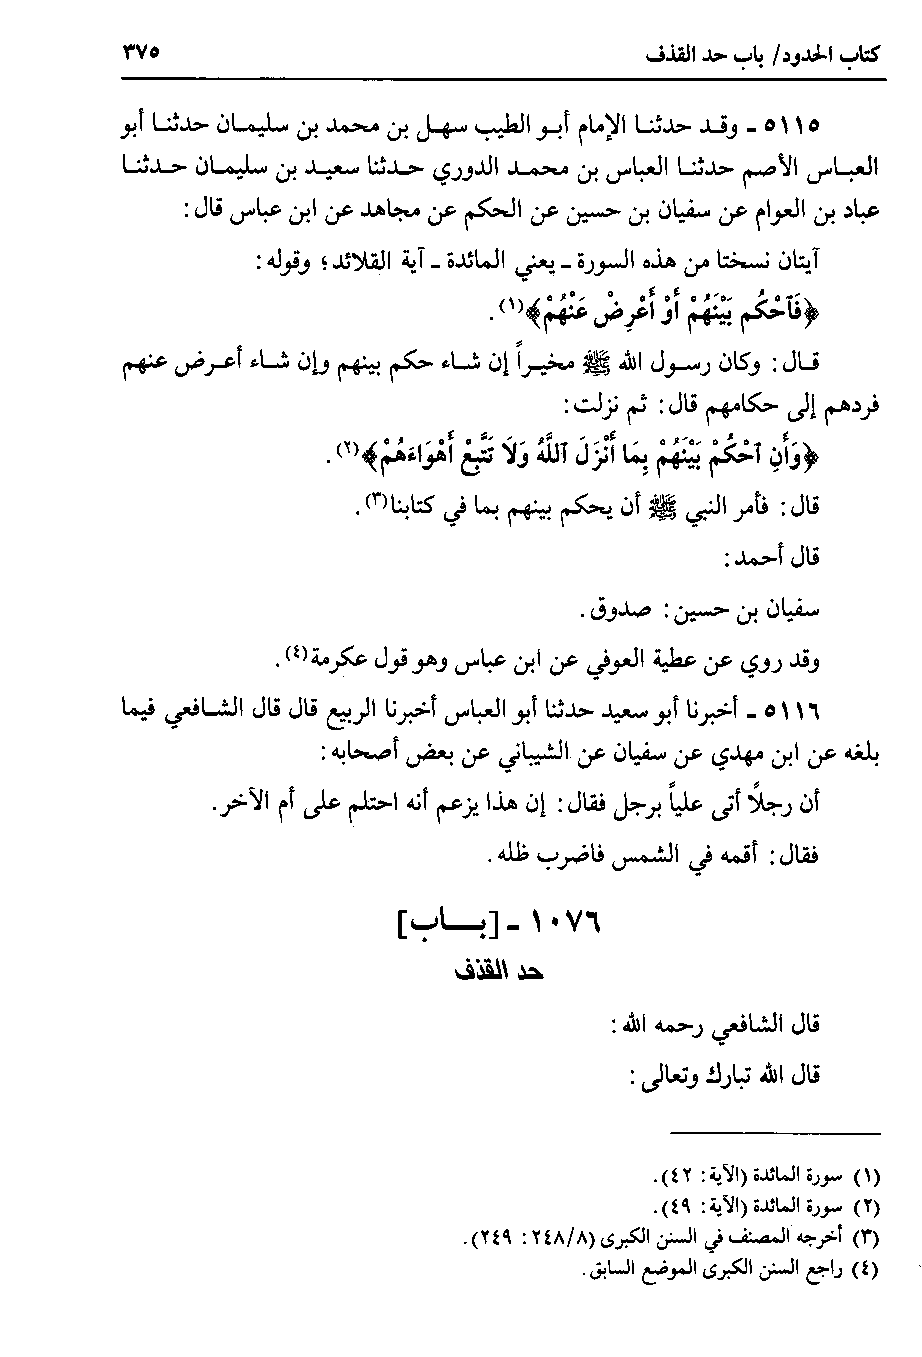 كتاب الحدود/ باب حد القذف ٣٧٥
٥١١٥ - وقد حدثنا الإمام أبو الطيب سهل بن محمد بن سليمان حدثنا أبو
العباس الأصم حدثنا العباس بن محمد الدوري حدثنا سعيد بن سليمان حدثنا
عباد بن العوام عن سفيان بن حسين عن الحكم عن مجاهد عن ابن عباس قال:
آيتان نسختا من هذه السورة - يعني المائدة - آية القلائد؛ وقوله:
﴿فَآحْكُم بَيْنَهُمْ أَوْ أَعْرِضْ عَنْهُمْ﴾(١).
قال: وكان رسول الله ﷺ مخيراً إن شاء حكم بينهم وإن شاء أعرض عنهم
فردهم إلى حكامهم قال: ثم نزلت:
﴿وَأَنِ آحْكُمْ بَيْنَهُمْ بِمَا أَنْزَلَ آللَّهُ وَلاَ تَتَّبِعْ أَهْوَاءَهُمْ﴾(٢).
قال: فأمر النبي ﷺ أن يحكم بينهم بما في كتابنا(٣).
قال أحمد:
سفيان بن حسين: صدوق.
وقد روي عن عطية العوفي عن ابن عباس وهو قول عكرمة(٤).
٥١١٦ - أخبرنا أبو سعيد حدثنا أبو العباس أخبرنا الربيع قال قال الشافعي فيما
بلغه عن ابن مهدي عن سفيان عن الشيباني عن بعض أصحابه:
أن رجلاً أتى علياً برجل فقال: إن هذا يزعم أنه احتلم على أم الآخر.
فقال: أقمه في الشمس فاضرب ظله.
١٠٧٦ - [بـاب]
حد القذف
قال الشافعي رحمه الله:
قال الله تبارك وتعالى:
(١) سورة المائدة (الآية: ٤٢).
(٢) سورة المائدة (الآية: ٤٩).
(٣) أخرجه المصنف في السنن الكبرى (٨/ ٢٤٨: ٢٤٩).
(٤) راجع السنن الكبرى الموضع السابق.